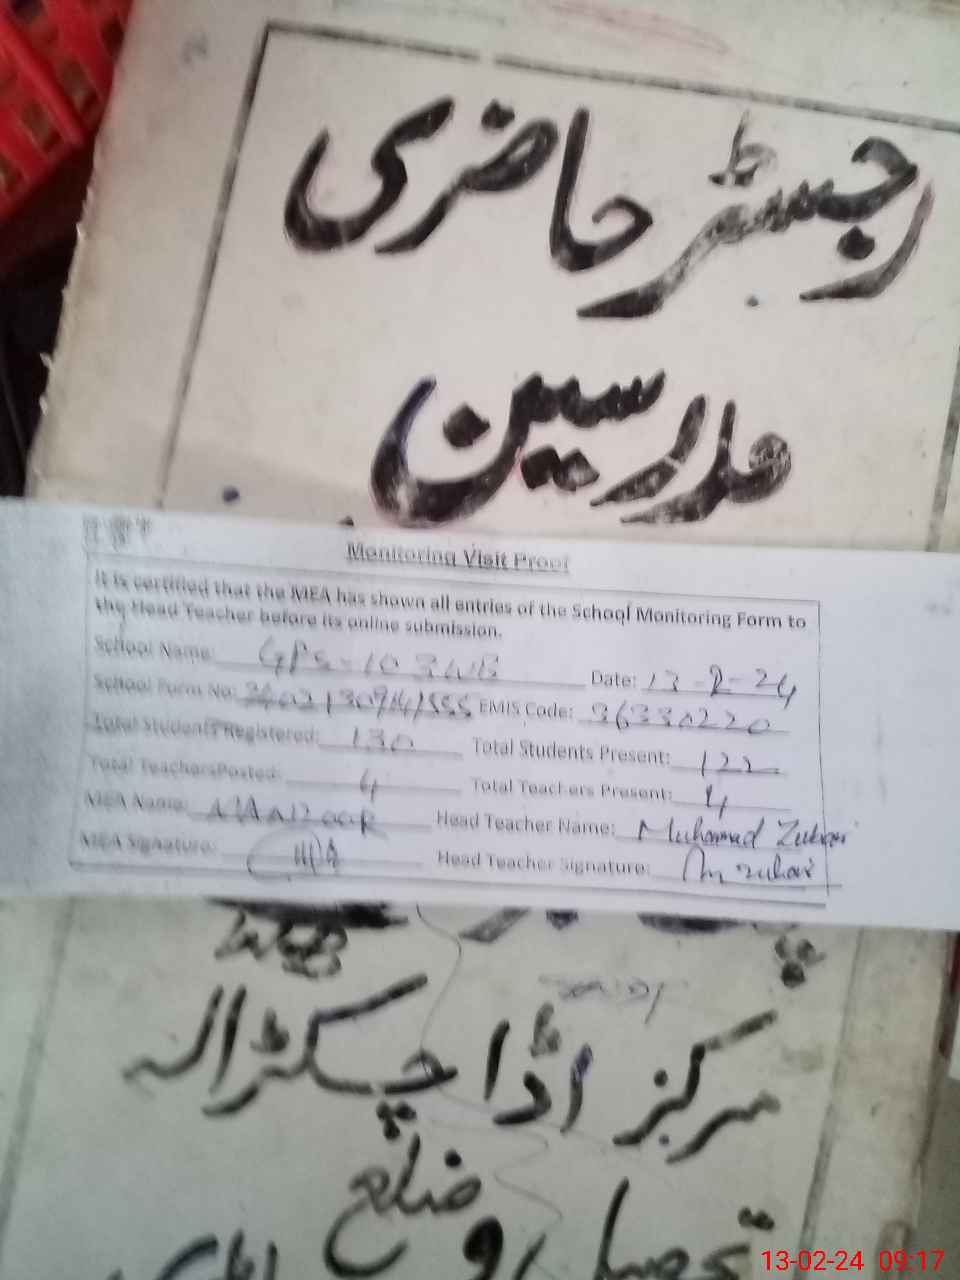 رجسٹر حاضری
مدرسین
Monitoring Visit Proof
It is certified that the MEA has shown all entries of the School Monitoring Form to
the Head Teacher before its online submission.
School Name: GPS-103WB Date: 13-2-24
School Form No: EMIS Code: 36330220
Total Students Registered: 130 Total Students Present: 122
Total TeachersPosted: 4 Total Teachers Present: 4
MEA Name: Head Teacher Name: Muhammad
MEA Signature: Head Teacher Signature:
WB
مرکز اڈا چکڑالہ
تحصیل و ضلع
13-02-24 09:17